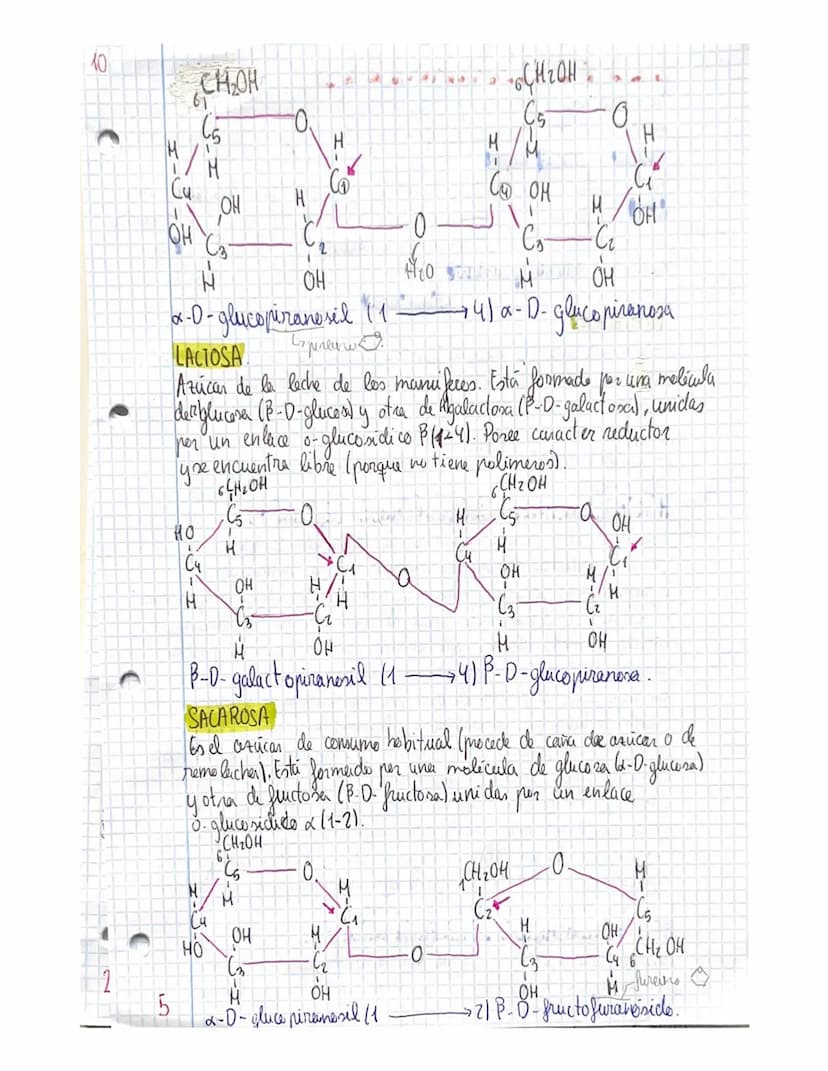 10
6 CH₂OH 6 CH₂OH
C5 O C5 O
H H H H H H
C4 C① C④ C1
OH OH H OH H OH
C3 C2 O C3 C2
H OH H₂O H OH
α-D-glucopiranosil (1 → 4) α-D-glucopiranosa
↳ pirano
LACTOSA
Azúcar de la leche de los mamíferos. Está formado por una molécula
de glucosa (β-D-glucosa) y otra de galactosa (β-D-galactosa), unidas
por un enlace o-glucosídico β(1-4). Posee caracter reductor
y se encuentra libre (porque no tiene polimeros).
6 CH₂OH 6 CH₂OH
C5 O C5 O
HO H H H OH
C4 C1 O C4 C1
H OH H H OH H H
C3 C2 C3 C2
H OH H OH
β-D-galactopiranosil (1 → 4) β-D-glucopiranosa.
SACAROSA
Es el azúcar de consumo habitual (procede de caña de azúcar o de
remolacha). Está formado por una molécula de glucoza (α-D-glucosa)
y otra de fructosa (β-D-fructosa) unidas por un enlace
o-glucosidido α(1-2).
6 CH₂OH
C5 O 1 CH₂OH O H
H H H
C4 C1 C2 C5
HO OH H H OH 6 CH₂OH
C3 C2 O C3 C4
H OH OH H furano
α-D-glucopiranosil (1 → 2) β-D-fructofuranósido.
2
5